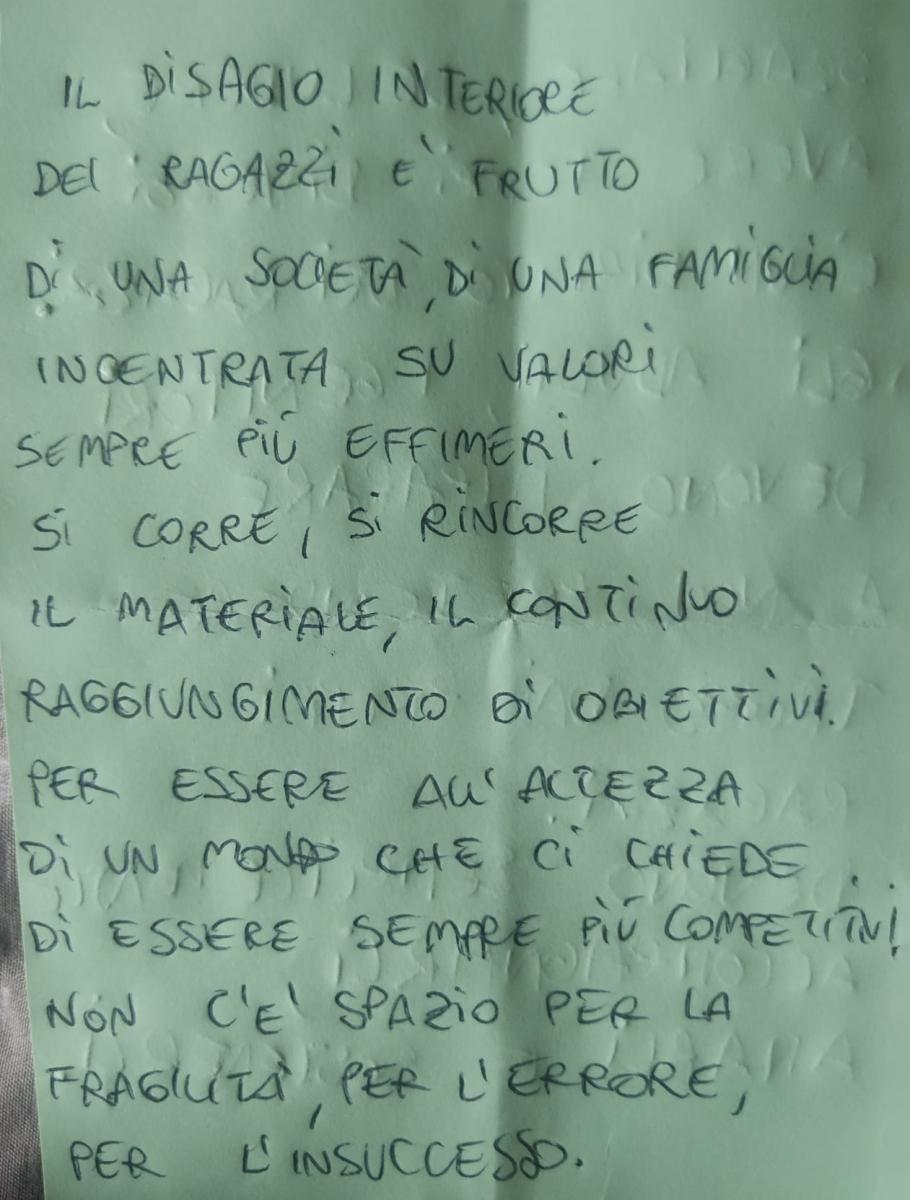 IL DISAGIO INTERIORE
DEI RAGAZZI E' FRUTTO
DI UNA SOCIETÀ, DI UNA FAMIGLIA
INCENTRATA SU VALORI
SEMPRE PIÚ EFFIMERI.
SI CORRE, SI RINCORRE
IL MATERIALE, IL CONTINUO
RAGGIUNGIMENTO DI OBIETTIVI.
PER ESSERE ALL'ALTEZZA
DI UN MONDO CHE CI CHIEDE
DI ESSERE SEMPRE PIÚ COMPETITIVI
NON C'E' SPAZIO PER LA
FRAGILITÀ, PER L'ERRORE,
PER L'INSUCCESSO.